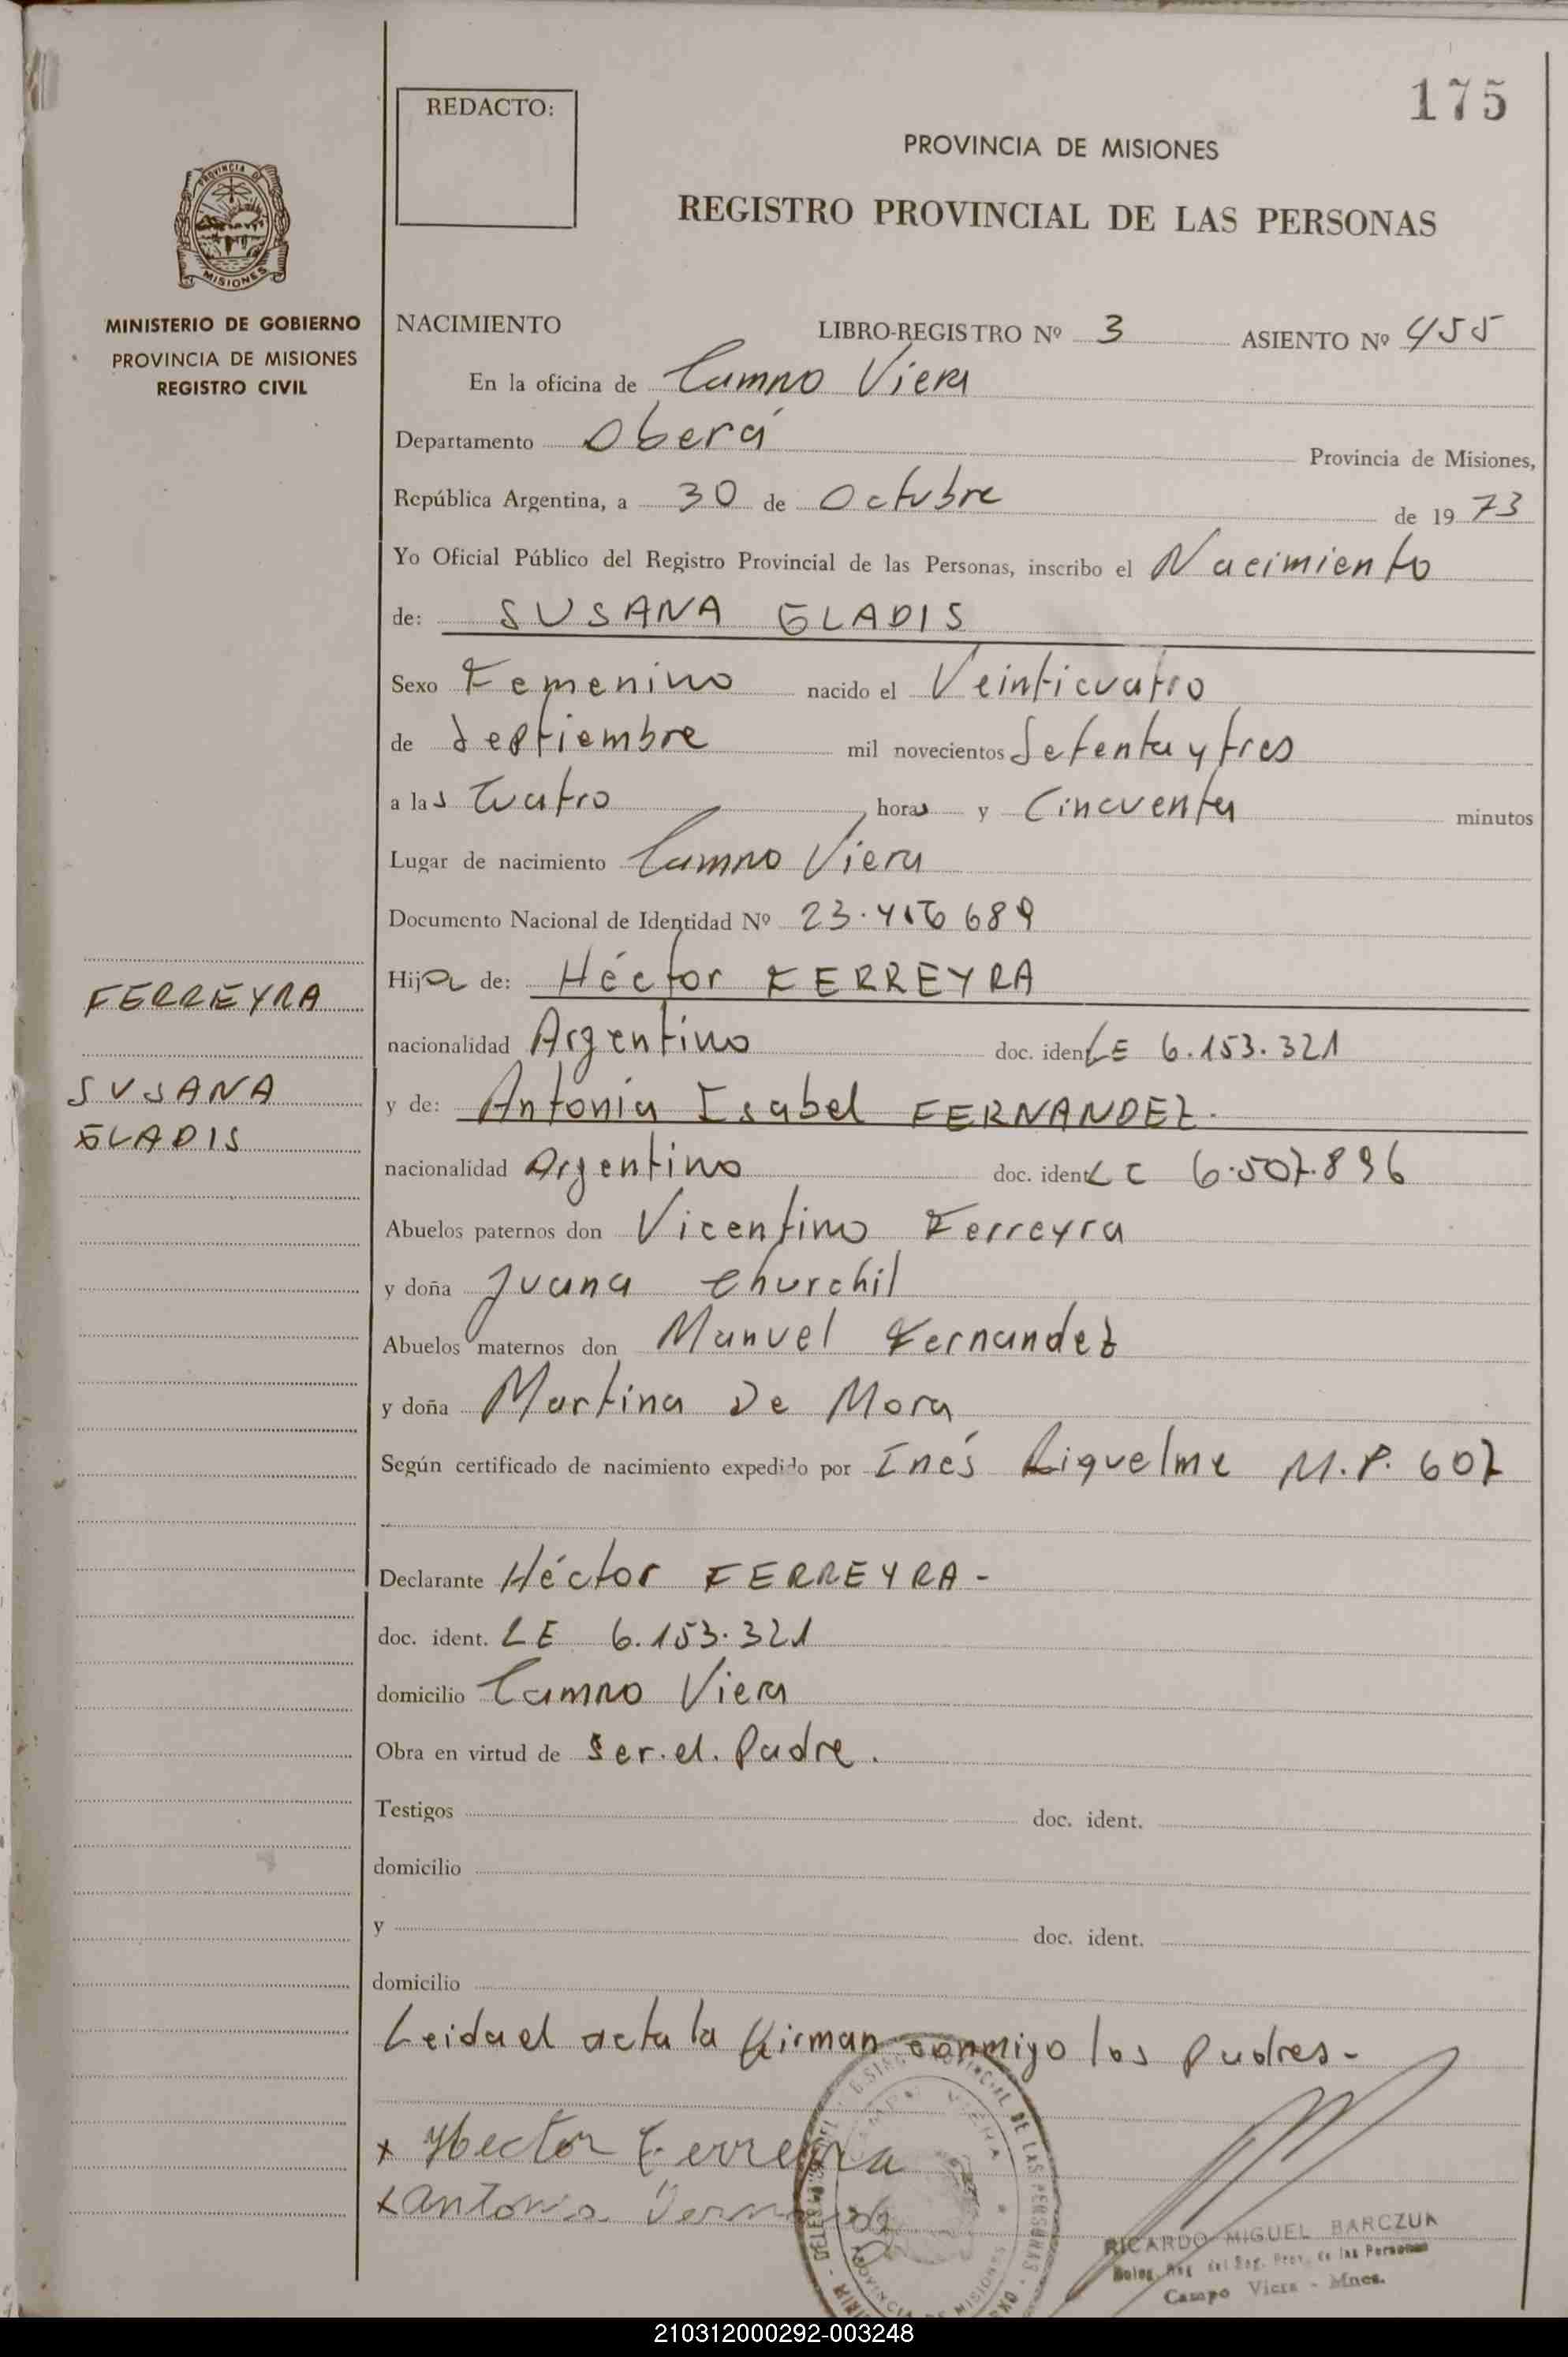 175
REDACTO:
PROVINCIA DE MISIONES
REGISTRO PROVINCIAL DE LAS PERSONAS
PROVINCIA DE
MISIONES
MINISTERIO DE GOBIERNO
PROVINCIA DE MISIONES
REGISTRO CIVIL
NACIMIENTO LIBRO-REGISTRO Nº 3 ASIENTO Nº 455
En la oficina de Campo Viera
Departamento Oberá Provincia de Misiones,
República Argentina, a 30 de Octubre de 1973
Yo Oficial Público del Registro Provincial de las Personas, inscribo el Nacimiento
de: SUSANA GLADIS
Sexo Femenino nacido el Veinticuatro
de Septiembre mil novecientos Setenta y tres
a las Cuatro horas y Cincuenta minutos
Lugar de nacimiento Campo Viera
Documento Nacional de Identidad Nº 23.416 689
Hija de: Héctor FERREYRA
nacionalidad Argentino doc. iden LE 6.153.321
y de: Antonia Isabel FERNANDEZ.
nacionalidad Argentino doc. ident LC 6.507.896
Abuelos paternos don Vicentino Ferreyra
y doña Juana Churchil
Abuelos maternos don Manuel Fernandez
y doña Martina De Mora
Según certificado de nacimiento expedido por Inés Riquelme M.P. 607
Declarante Héctor FERREYRA-
doc. ident. LE 6.153.321
domicilio Campo Viera
Obra en virtud de Ser.el.Padre.
Testigos doc. ident.
domicilio
y doc. ident.
domicilio
Leida el acta la firman conmigo los padres-
x Hector Ferreyra
x Antonia
RICARDO MIGUEL BARCZUK
Deleg. Reg. del Reg. Prov. de las Personas
Campo Viera - Mnes.
FERREYRA
SUSANA
GLADIS
210312000292-003248